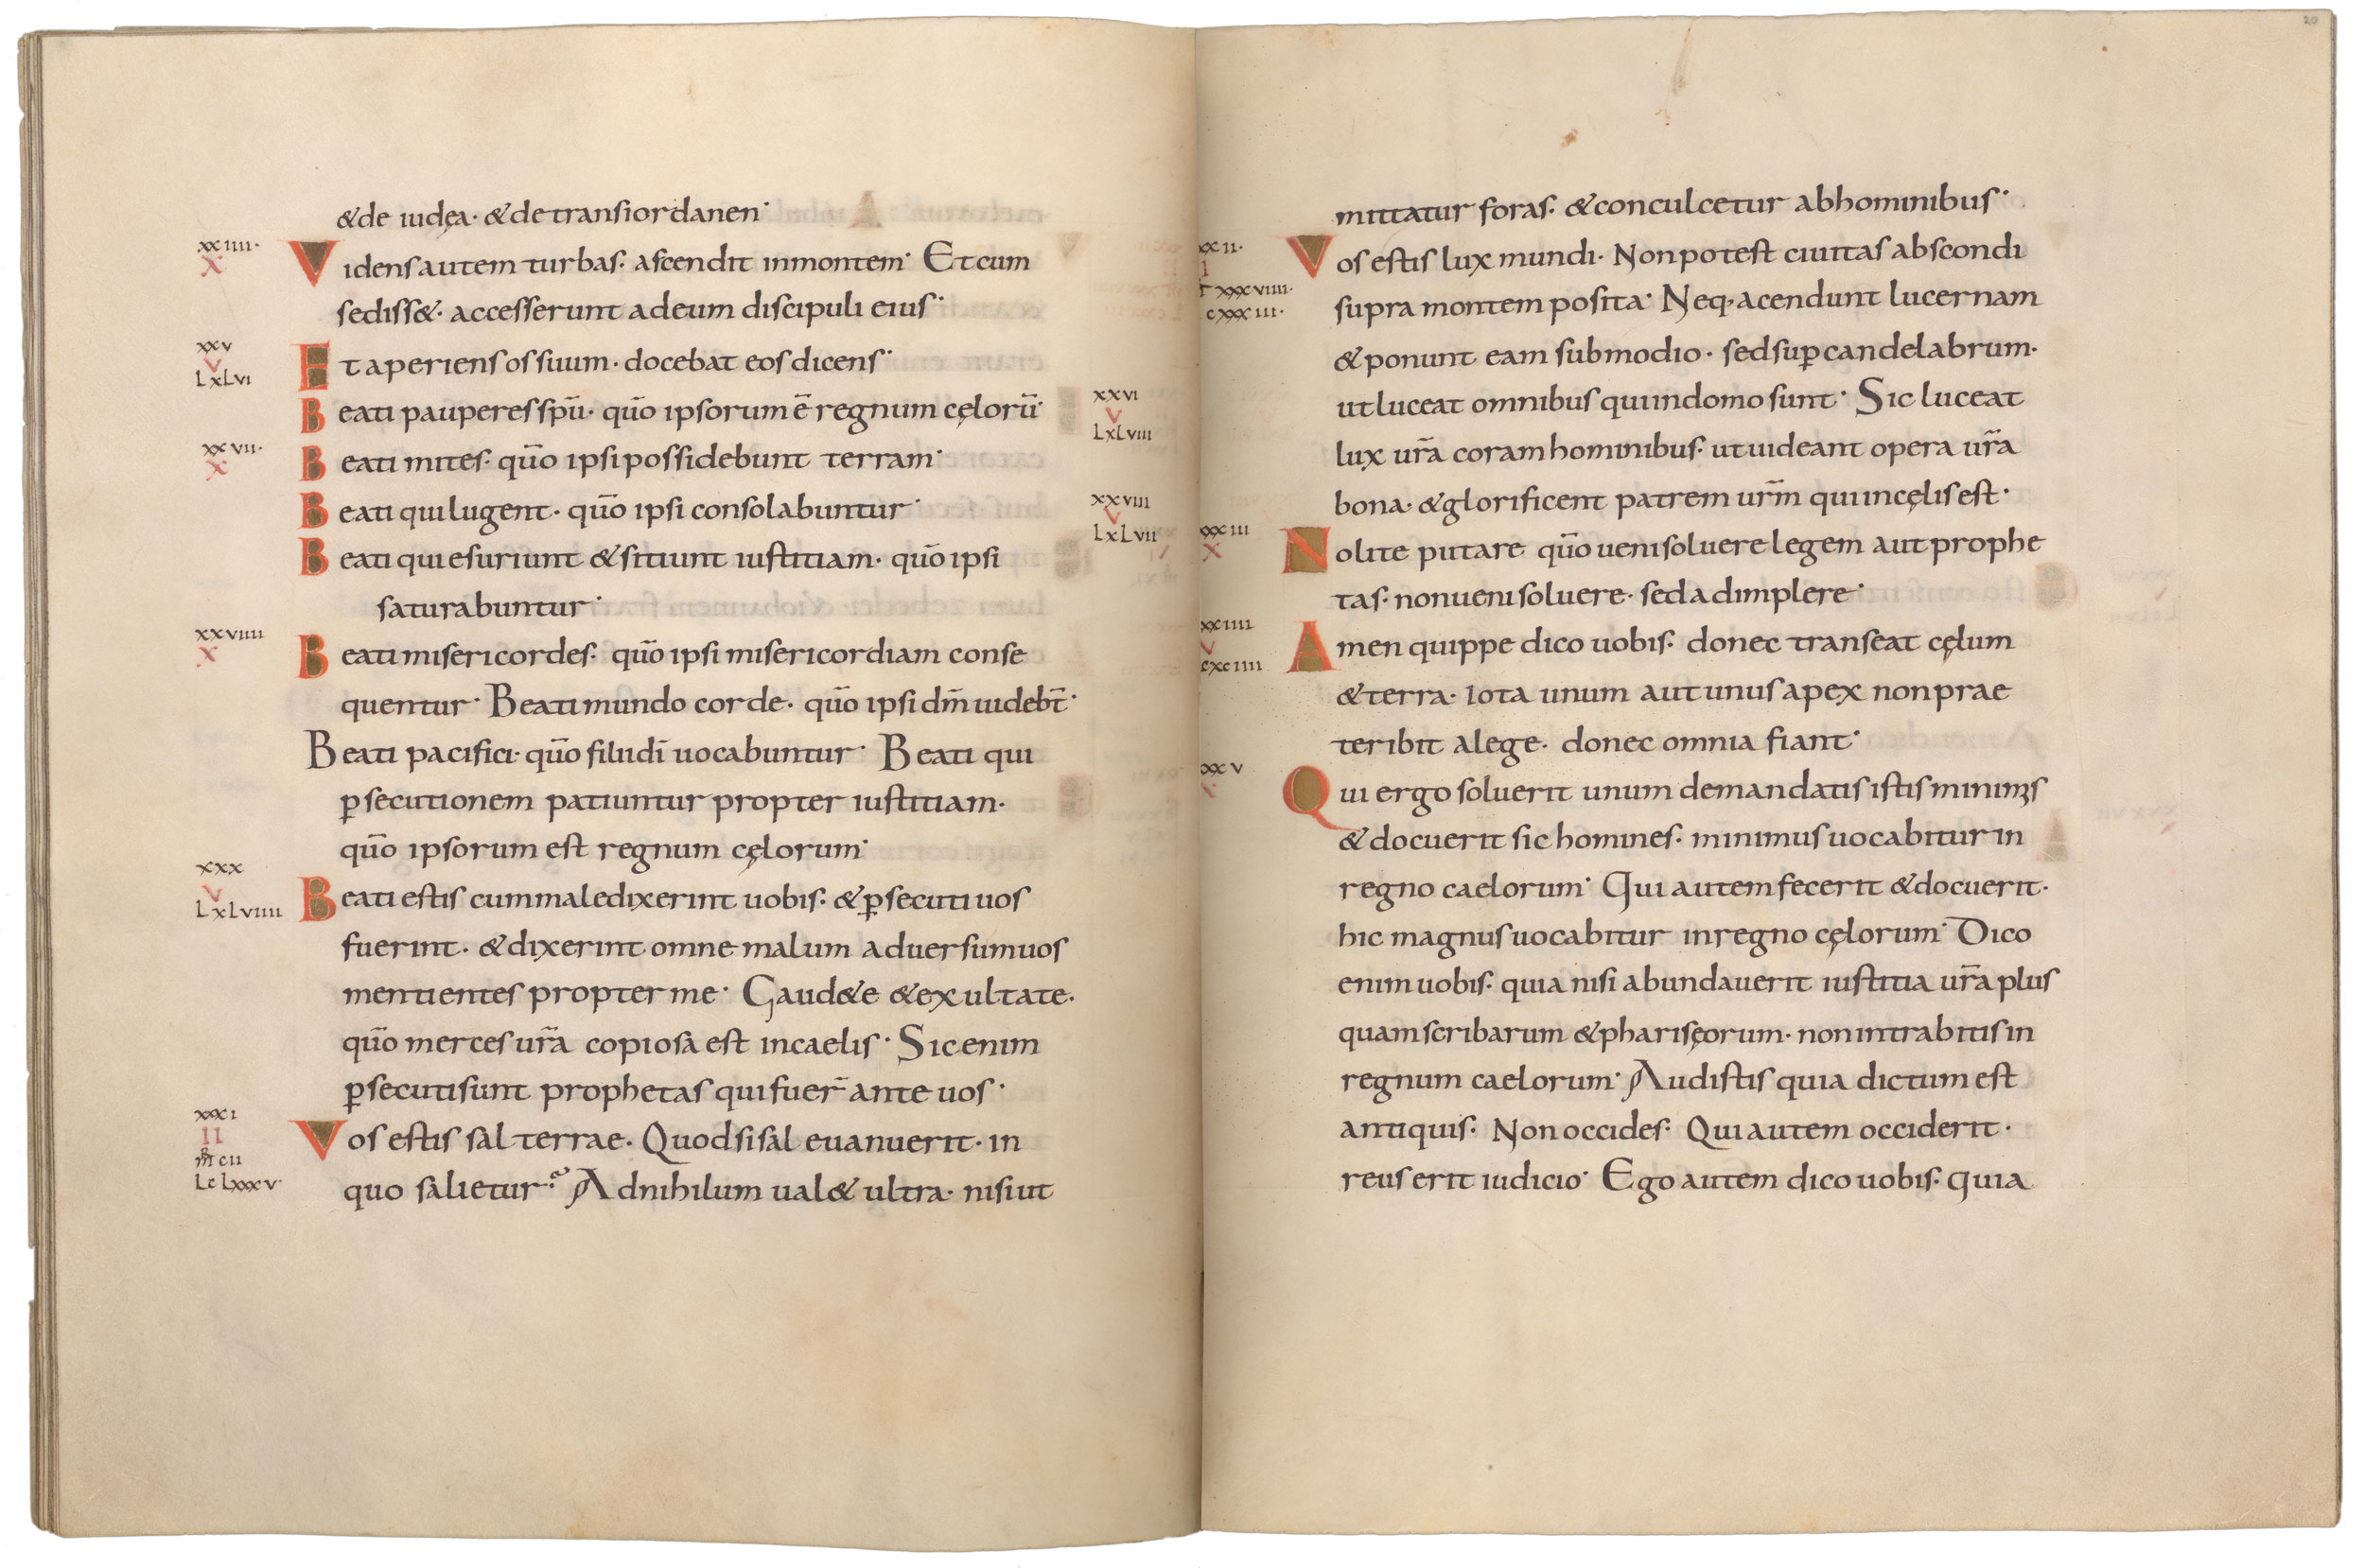 &de iudęa· &detransiordanen·
xxiiii·
X
Vidensautem turbas· ascendit inmontem· Etcum
sediss&· accesserunt adeum discipuli eius·
xxv
V
LxLvi
Etaperiensossuum· docebat eosdicens·
Beati pauperesspū· qūo ipsorumē regnum cęlorū·
xxvi
V
LxLviii
xxvii·
X
Beati mites· qūo ipsipossidebunt terram·
Beati quilugent· qūo ipsi consolabuntur·
xxviii
V
LxLvii
Beati quiesuriunt &sitiunt iustitiam· qūo ipsi
saturabuntur·
xxviiii
X
Beatimisericordes· qūo ipsimisericordiam conse
quentur· Beatimundo corde· qūo ipsidm̄ uidebt̄·
Beati pacifici· qūo filiidī uocabuntur· Beati qui
ꝑsecutionem patiuntur propter iustitiam·
qūo ipsorum est regnum cęlorum·
xxx
V
LxLviiii
Beatiestis cummaledixerint uobis· &ꝑsecuti uos
fuerint· &dixerint omne malum aduersumuos
mentientes propterme· Gaud&e &exultate·
qūo merces ur̄a copiosa est incaelis· Sicenim
ꝑsecutisunt prophetas quifuer̄ ante uos·
xxxi
II
cii
Lc Lxxxv·
Vos estis sal terrae· Quodsisal euanuerit· in
quo salietur? Adnihilum ual& ultra· nisiut
20
mittatur foras· &conculcetur abhominibus·
xxii·
I
xxxviiii·
cxxxiii·
Vos estis lux mundi· Nonpotest ciuitas abscondi
supra montem posita· Neq· acendunt lucernam
&ponunt eam submodio· sedsuꝑcandelabrum·
utluceat omnibus quiindomo sunt· Sic luceat
lux ur̄a coramhominibus· utuideant opera ur̄a
bona· &glorificent patrem ur̄m quiincęlisest·
xxxiii
X
Nolite putare qūo uenisoluerelegem autprophe
tas· nonuenisoluere· sedadimplere·
xxiiii
V
cxciiii
Amen quippe dico uobis· donec transeat cęlum
&terra· iota unum autunusapex nonprae
teribit alege· donec omnia fiant·
xxv
Qui ergo soluerit unum demandatis istis minimis
&docuerit sic homines· minimus uocabitur in
regno caelorum· Qui autemfecerit &docuerit·
hic magnusuocabitur inregno cęlorum· Dico
enim uobis· quia nisi abundauerit iustitia ur̄a plus
quamscribarum &pharisęorum· nonintrabitisin
regnum caelorum· Audistis quia dictum est
antiquis· Nonoccides· Quiautem occiderit·
reuserit iudicio· Ego autem dico uobis· quia